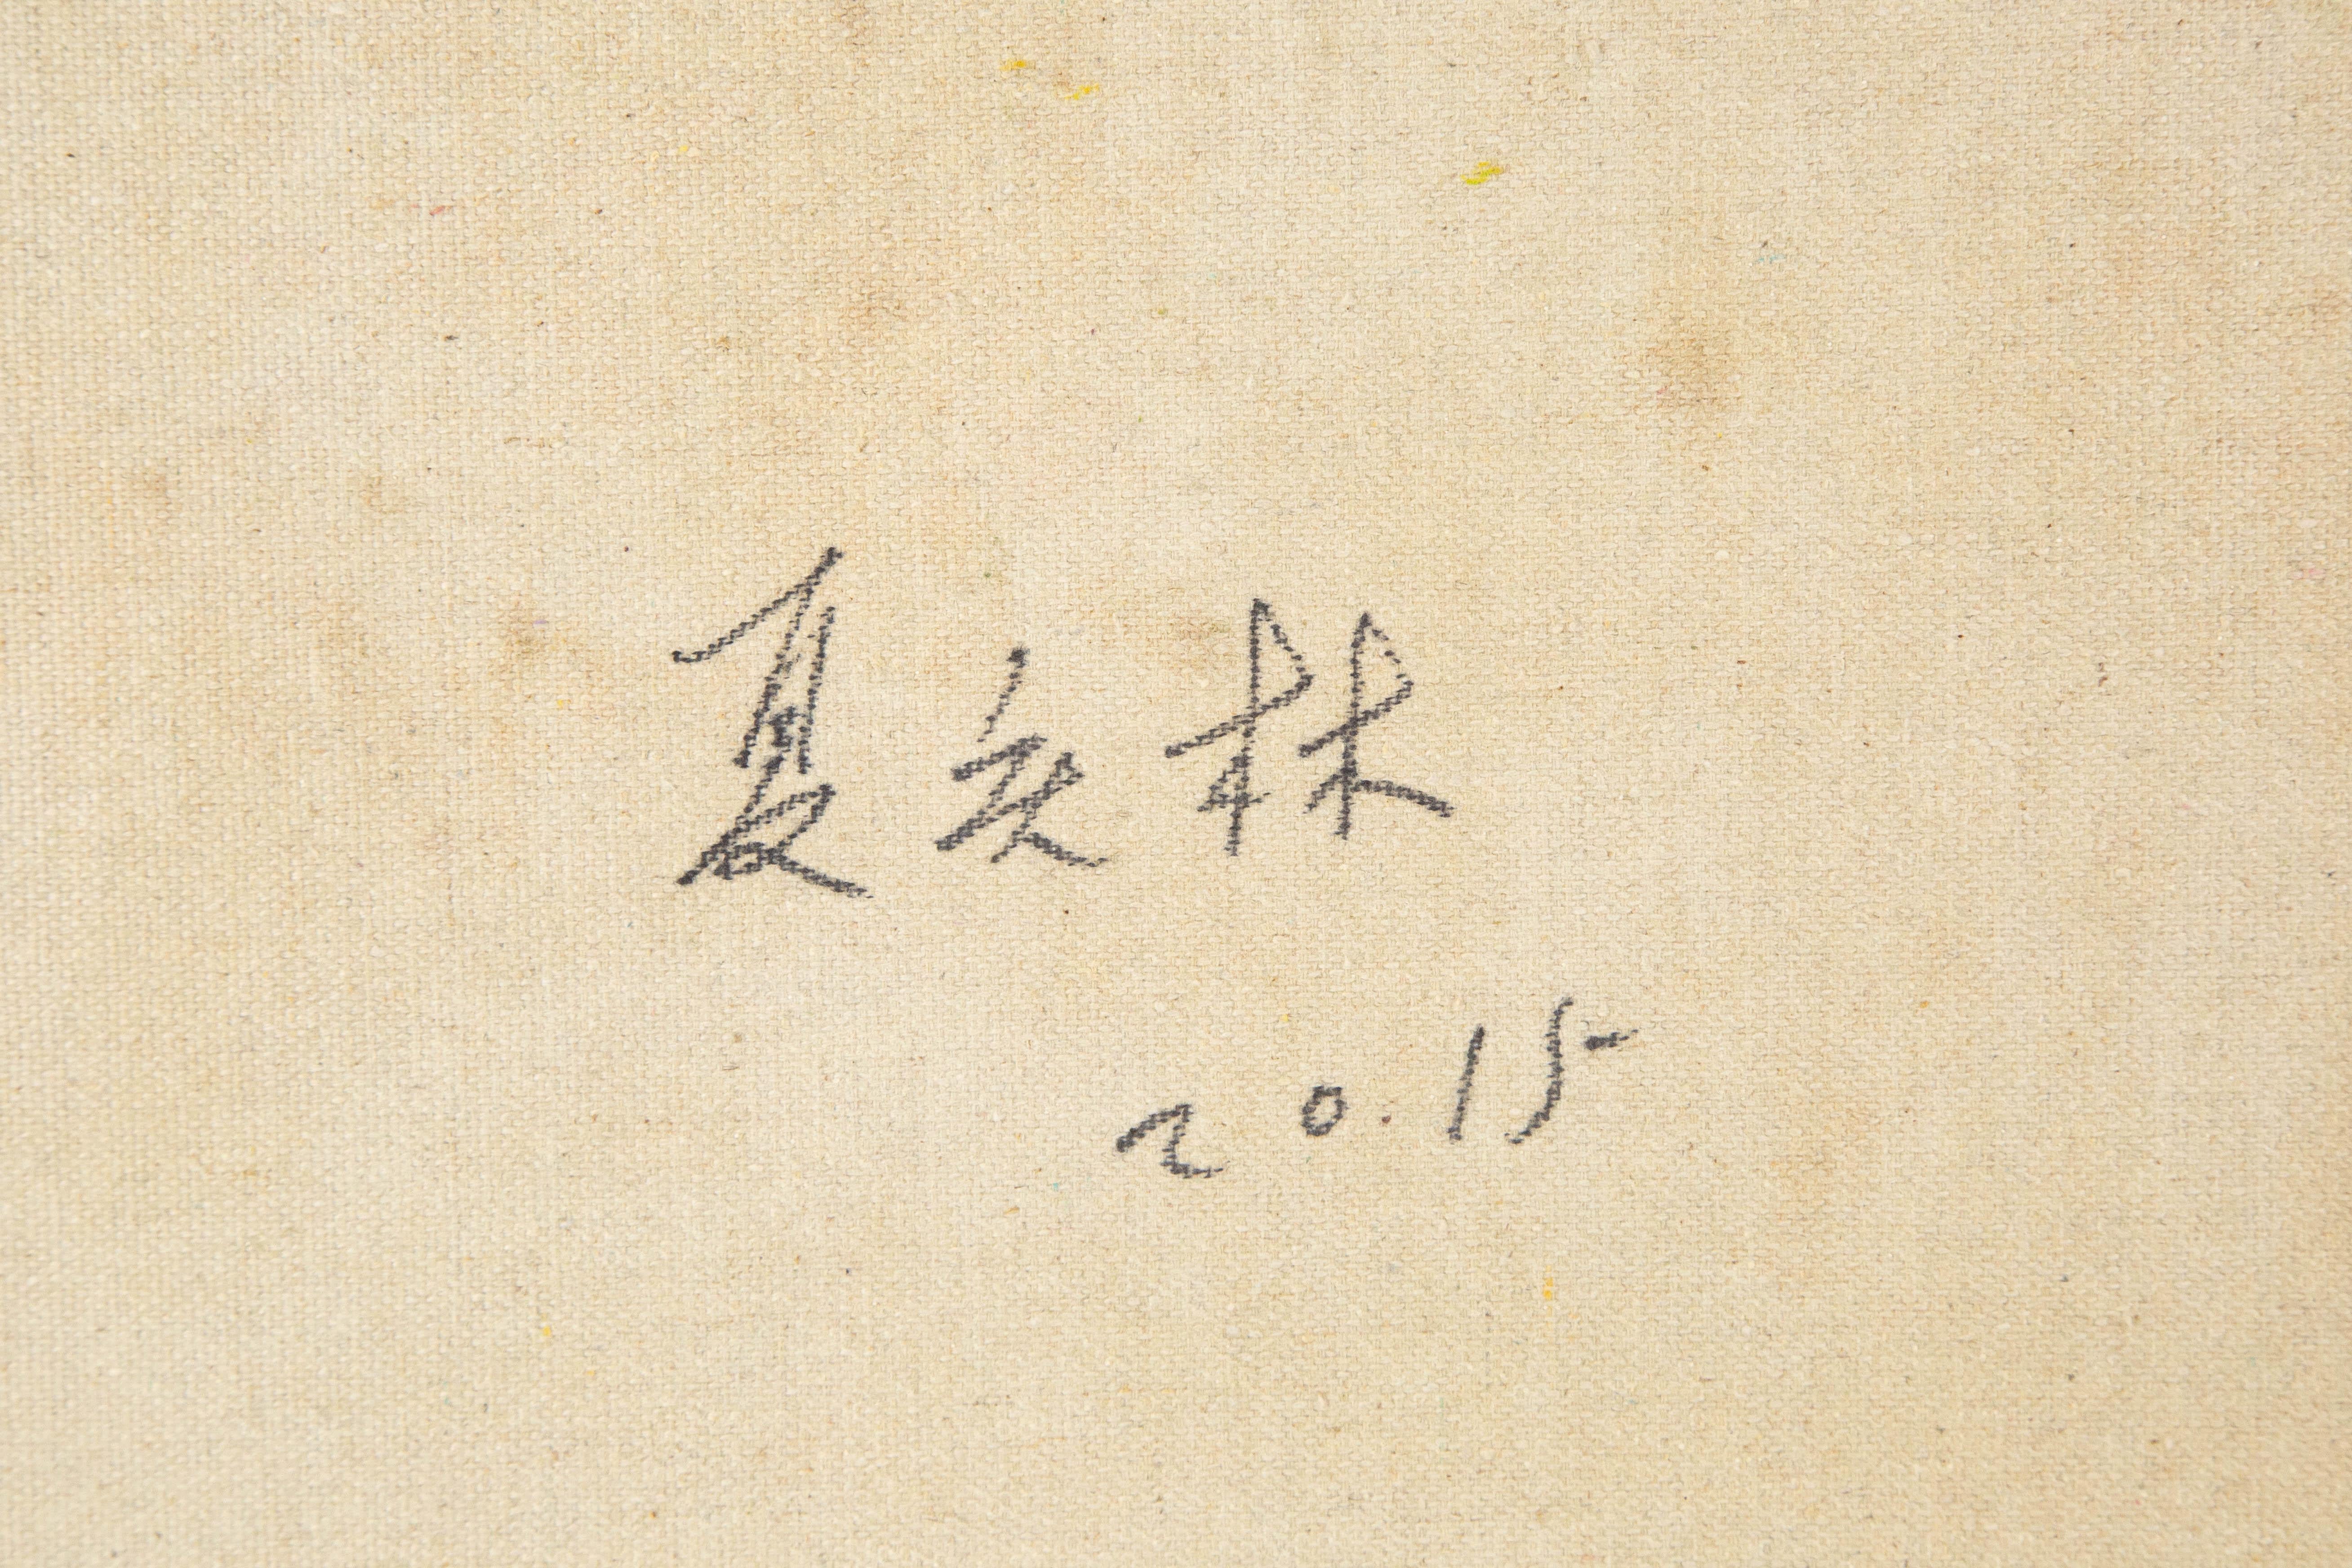 夏玄林
2015